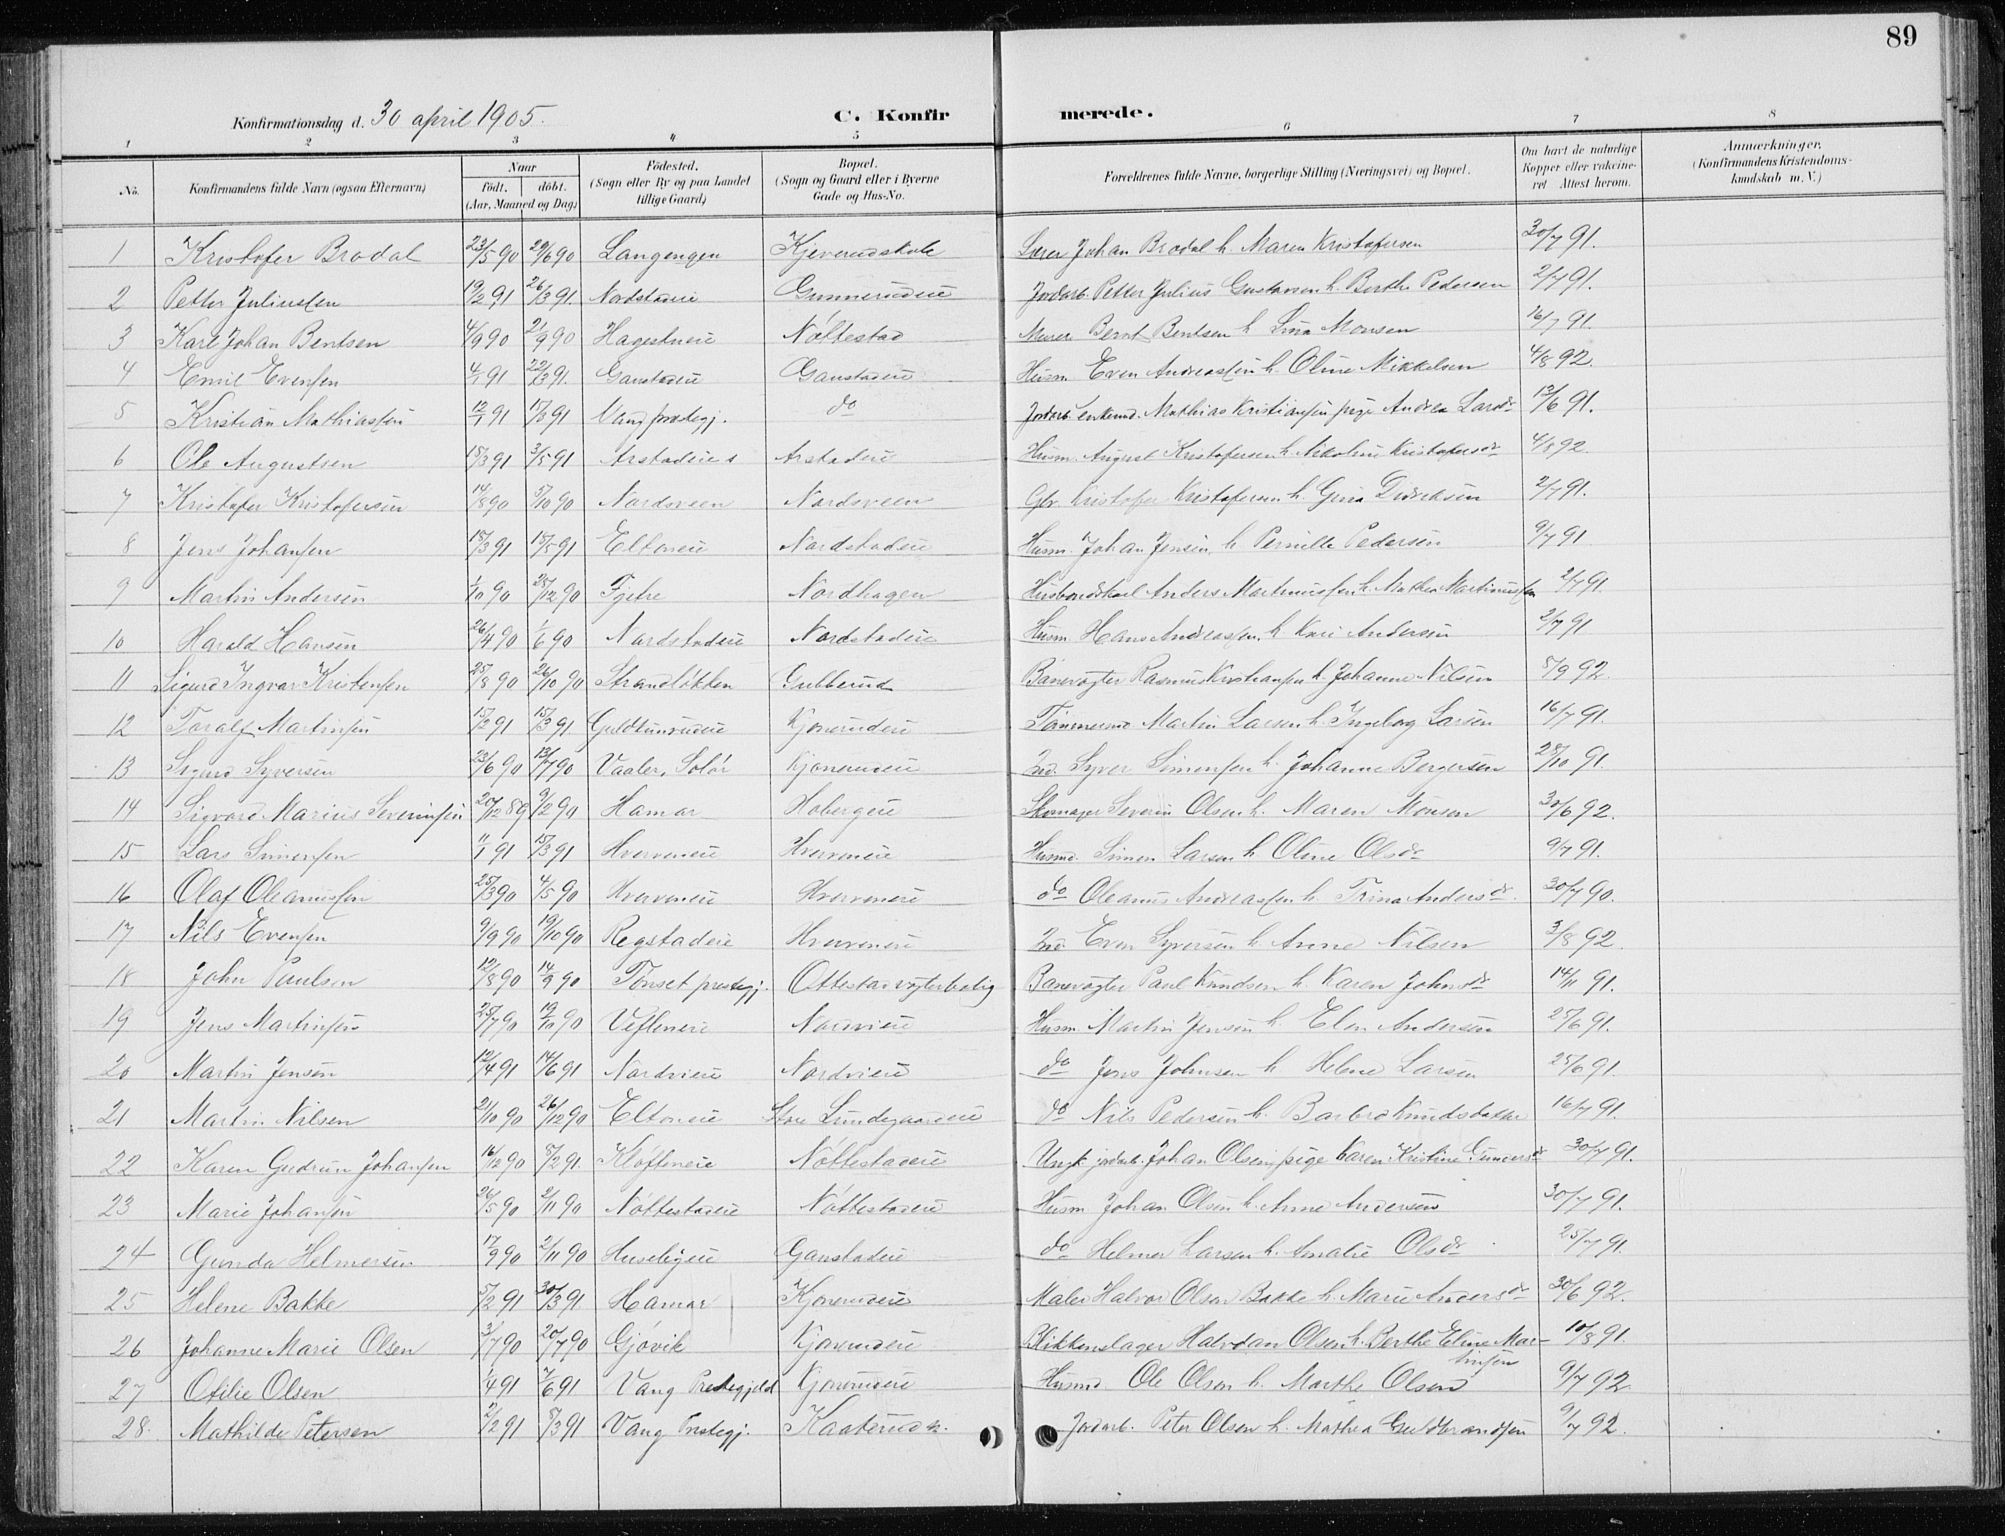 89
Konfirmationsdag d. 30 april 1905.
C. Konfirmerede.
1 2 3 4 5 6 7 8
No. Konfirmandens fulde Navn (ogsaa Efternavn) Naar født. døbt. (Aar, Maaned og Dag) Fødested. (Sogn eller By og paa Landet tillige Gaard) Bopæl. (Sogn og Gaard eller i Byerne Gade og Hus-No. Forældrenes fulde Navne, borgerlige Stilling (Næringsvei) og Bopæl. Om havt de naturlige Kopper eller vakcineret. Attest herom. Anmærkninger. (Konfirmandens Kristendomskundskab m. V.)
1 Kristofer Brodal 23/5 90 29/6 90 Langengen Kjeverudskole Lærer Johan Brodal h. Maren Kristofersen 30/7 91.
2 Petter Juliussen 19/2 91 26/3 91. Nordstadeie Gunnerudeie Jordarb. Petter Julius Gustavsen h. Berthe Pedersen 2/7 91.
3 Karl Johan Bentsen 4/9 90 21/9 90 Hagestueie Nøttestad Murer Bernt Bentsen h. Lina Monsen 16/7 91.
4 Emil Evensen 4/1 91 22/3 91. Ganstadeie Ganstadeie Husm. Even Andreassen h. Oline Mikkelsen 4/8 92.
5 Kristian Mathiassen 12/1 91 15/3 91 Vang prestegj. do Jordarb. enkem. Mathias Kristiansen pige Andrea Larsdr 13/6 91.
6 Ole Augustsen 18/3 91 3/5 91 Arstadeie Arstadeie Husm. August Kristofersen h. Nikoline Kristofersdr 4/8 92.
7 Kristofer Kristofersen 14/8 90 5/10 90 Nordsveen Nordsveen Gbr. Kristofer Kristofersen h. Gina Didriksen 2/7 91.
8 Jens Johansen 18/3 91 18/5 91 Eltoneie Nordstadeie Husm. Johan Jensen h. Pernille Pedersen 9/7 91
9 Martin Andersen 1/10 90 25/12 90 Fjetre Nordhagen Husbondskarl Anders Martinussen h. Mathea Martinussen 2/7 91.
10 Harald Hansen 26/4 90 1/6 90 Nordstadeie Nordstadeie Husm. Hans Andreassen h. Kari Andersen 2/7 91
11 Sigurd Ingvar Kristensen 25/8 90 26/10 90 Strandløkken Gubberud Banevogter Rasmus Kristiansen h. Johanne Nilsen 5/9 92.
12 Toralf Martinsen 15/2 91 15/3 91. Guldtunrudeie Kjonerudeie Tømmermd Martin Larsen h. Ingeborg Larsen 16/7 91.
13 Sigurd Syversen 23/6 90 13/7 90 Vaaler, Solør Kjonerudeie Ind. Syver Simensen h. Johanne Bergersen 28/10 91.
14 Sigvard Marius Severinsen 20/12 89 9/2 90 Hamar Hobergeie Skomager Severin Olsen h. Maren Monsen 30/6 92.
15 Lars Simensen 11/1 91 15/3 91 Hverveneie Hverveneie Husmd. Simen Larsen h. Oline Olsdr 9/7 91.
16 Olaf Oleanussen 25/3 90 4/5 90 Hverveneie Hverveneie do Oleanus Andreassen h. Trina Andersdr. 30/7 90.
17 Nils Evensen 9/9 90 19/10 90 Regstadeie Hverveneie Ind. Even Syversen h. Anne Nilsen 3/8 92.
18 John Paulsen 12/8 90 14/9 90 Tønset prestegj. Ottestad vogterbolig Banevogter Paul Knudsen h. Karen Johnsdr 14/11 91.
19 Jens Martinsen 25/7 90 19/10 90 Vefleneie Nordvieie Husm. Martin Jensen h. Elen Andersen 25/6 91.
20 Martin Jensen 12/4 91 14/6 91 Nordvieie Nordvieie do Jens Johnsen h. Helene Larsen 25/6 91.
21 Martin Nilsen 21/10 90 26/12 90 Eltoneie Store Lundegaardeie do Nils Pedersen h. Barbro Knudsdatter 16/7 91.
22 Karen Gudrun Johansen 16/12 90 8/2 91. Kløfteneie Nøttestadeie Ungk. jordarb. Johan Olsen, pige Karen Kristine Gunersdr 30/7 91.
23 Marie Johansen 26/5 90 2/11 90 Nøttestadeie Nøttestadeie Husm. Johan Olsen h. Anne Andersen 30/7 91.
24 Gunda Helmersen 17/9 90 2/11 90 Huseligeie Ganstadeie do Helmer Larsen h. Amalie Olsdr 25/7 91.
25 Helene Bakke 5/2 91 30/3 91. Hamar Kjonerudeie Maler Halvor Olsen Bakke h. Marie Andersdr 30/6 92.
26 Johanne Marie Olsen 3/7 90 20/7 90 Gjøvik Kjonerudeie Blikkenslager Halvdan Olsen h. Berthe Eline Martinsen 10/8 91.
27 Otilie Olsen 1/4 91 7/6 91 Vang Prestegjeld Kjonerudeie Husmd. Ole Olsen h. Marthe Olsen 9/7 92.
28. Mathilde Petersen 2/2 91 8/3 91 Vang Prestegj. Kaaterud e. Jordarb. Peter Olsen h. Mathea Guldbrandsen 9/7 92.